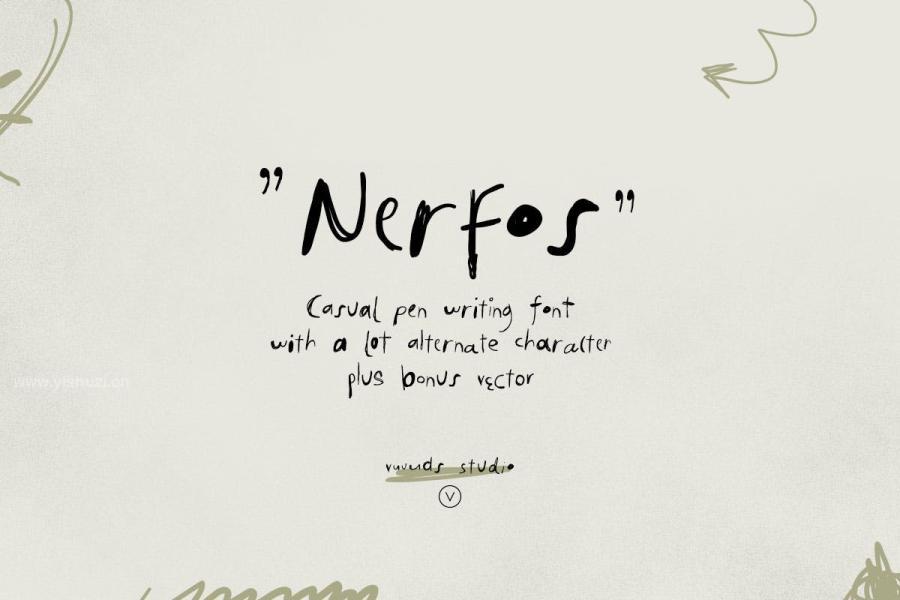 "Nerfos"
Casual pen writing font
with a lot alternate character
plus bonus vector
www.yishuzi.cn
vuuuds studio
V